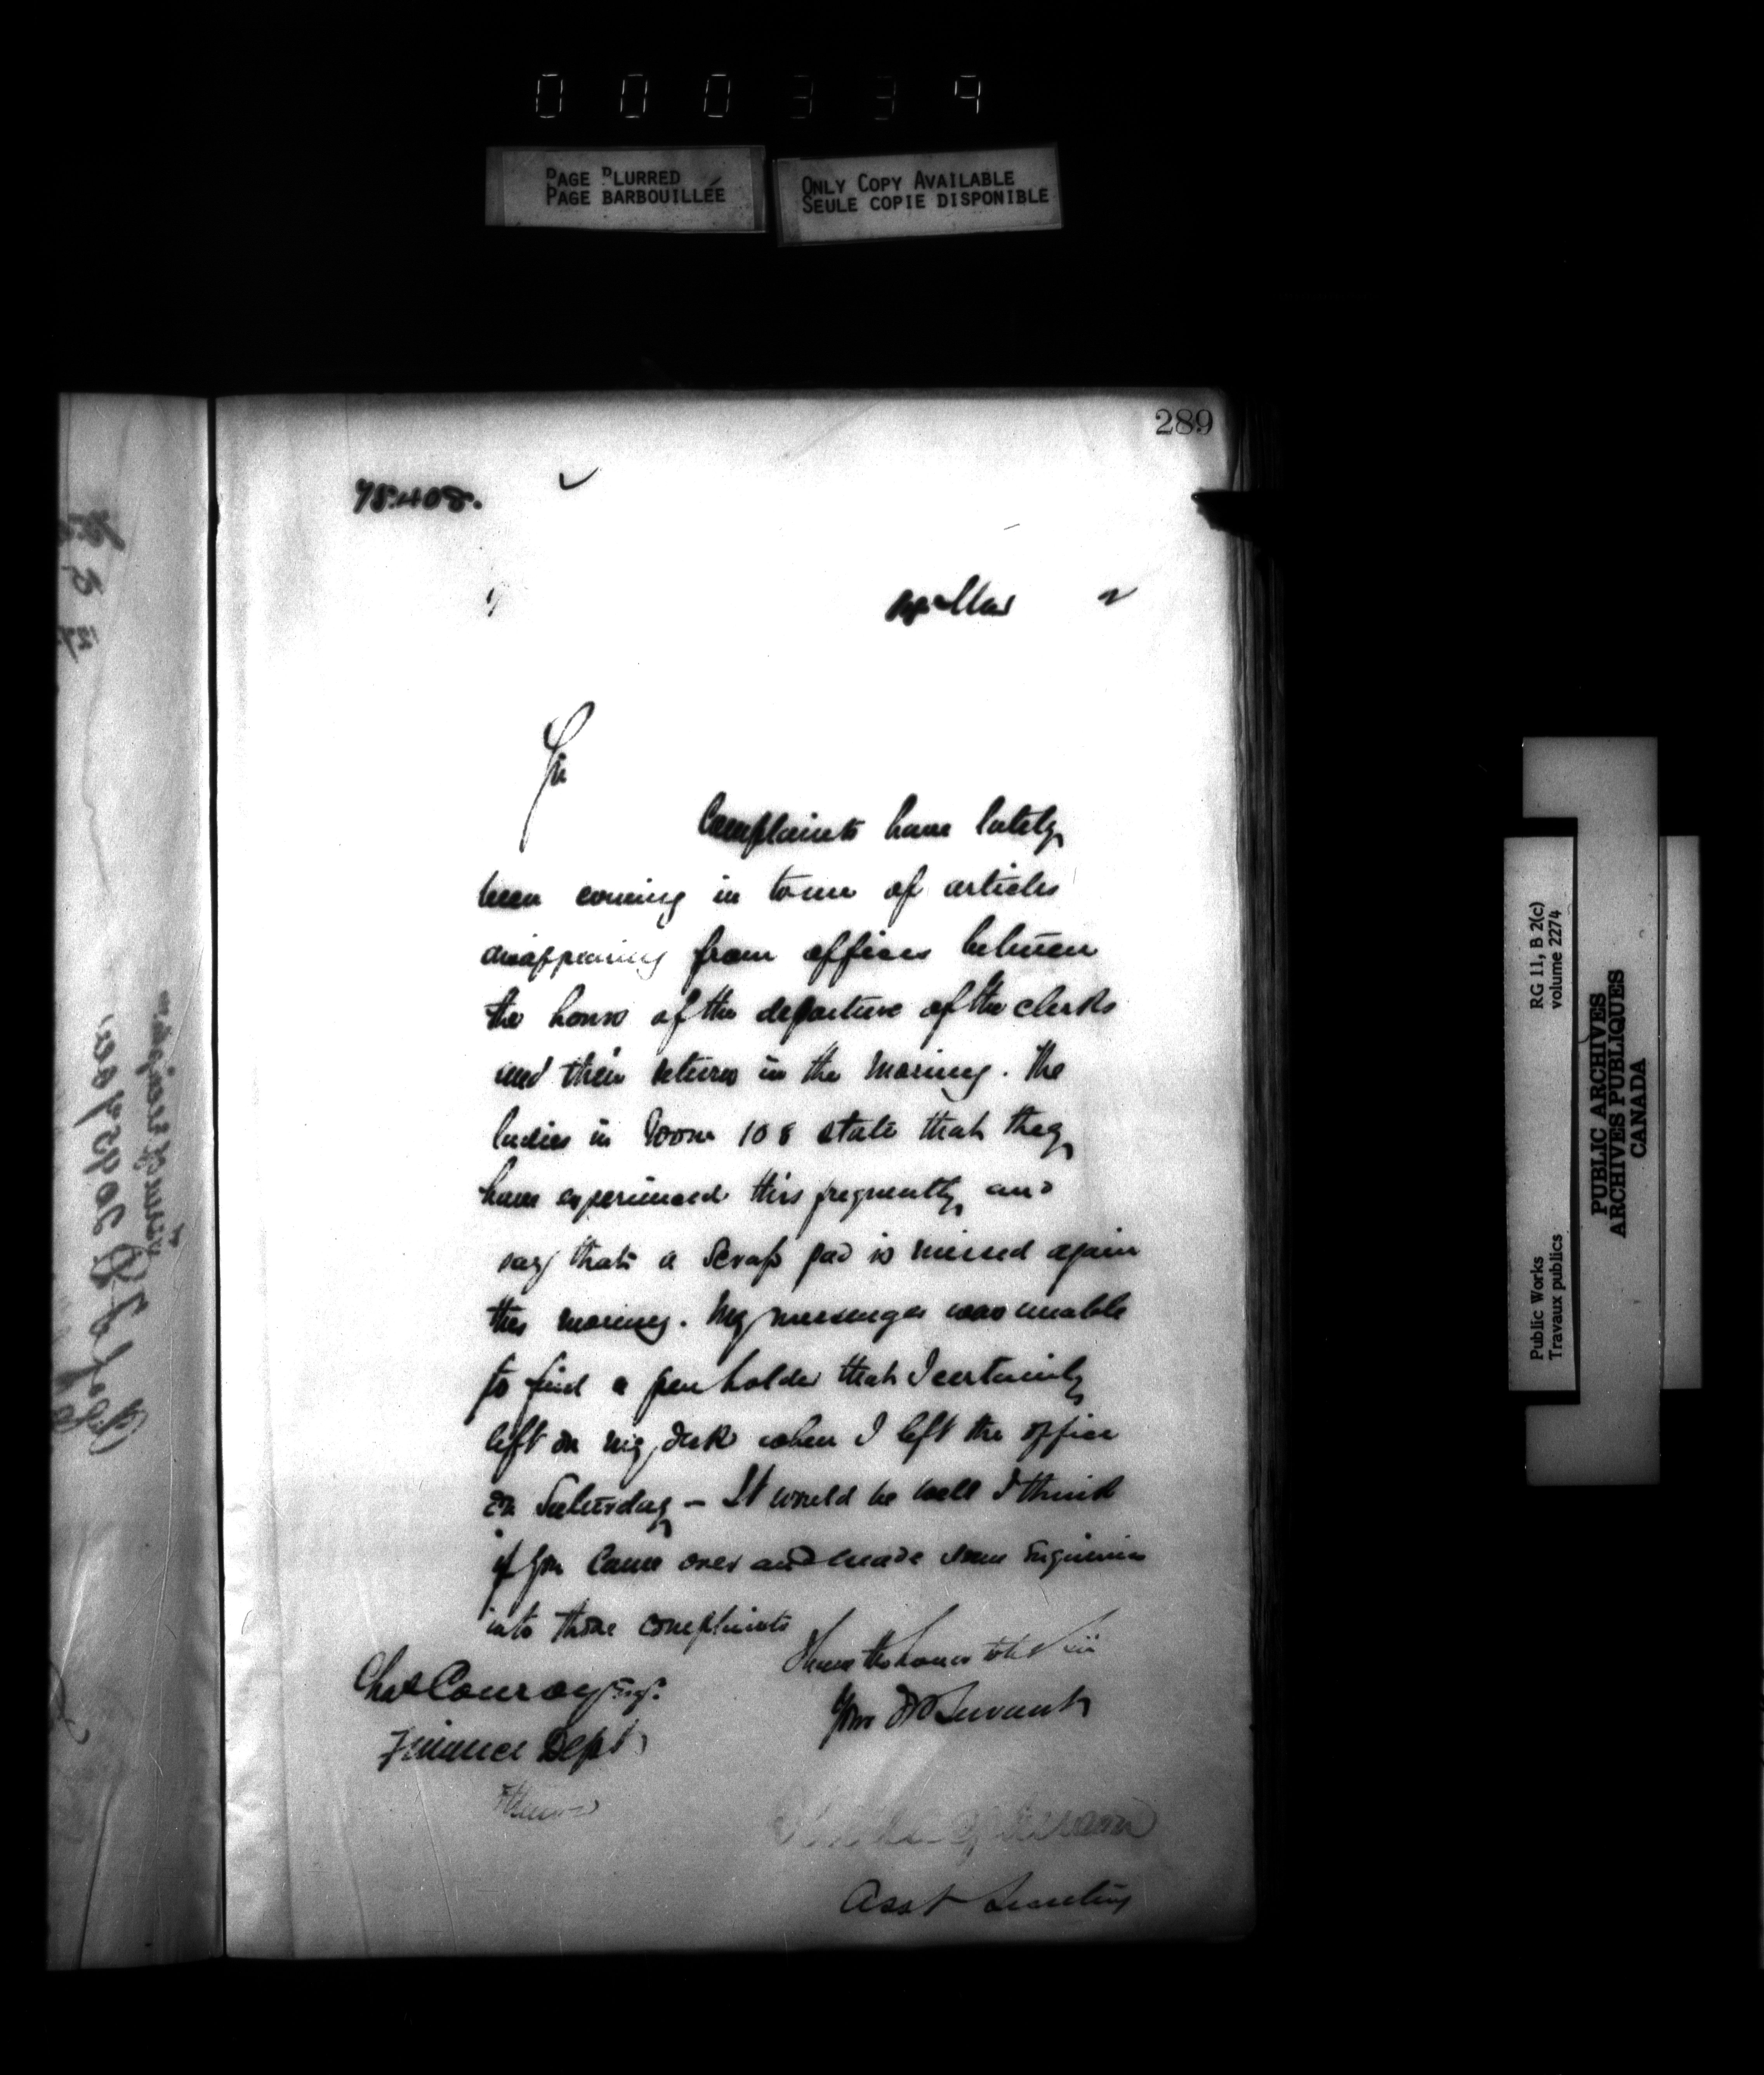 000339
PAGE BLURRED
PAGE BARBOUILLÉE
ONLY COPY AVAILABLE
SEULE COPIE DISPONIBLE
289
Mar 2
Sir
Complaints have lately
been coming in to me of articles
disappearing from offices between
the hours of the departure of the clerks
and their return in the morning. The
ladies in Room 108 state that they
have experienced this frequently and
say that a scrap pad is missed again
this morning. My messenger was unable
to find a pen holder that I certainly
left on my desk when I left the office
on Saturday – It would be well I think
if you came over and made some enquiries
into those complaints
I have the honor to be Sir
Your Ob Servant
Chas Conroy Esq.
Finance Dept
Ottawa
Asst Secretary
RG 11, B 2(c)
volume 2274
Public Works
Travaux publics
PUBLIC ARCHIVES
ARCHIVES PUBLIQUES
CANADA